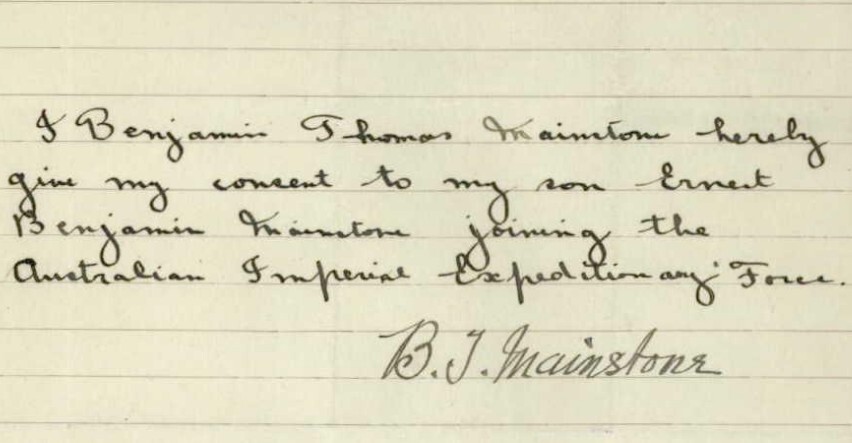 I Benjamin Thomas Mainstone hereby
give my consent to my son Ernest
Benjamin Mainstone joining the
Australian Imperial Expeditionary Force.
B. T. Mainstone